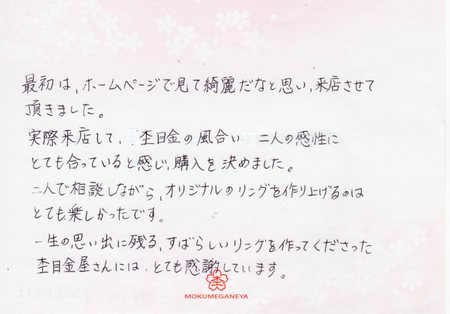 最初は、ホームページで見て綺麗だなと思い、来店させて
頂きました。
実際来店して、杢目金の風合い 二人の感性に
とても合っていると感じ、購入を決めました。
二人で相談しながら、オリジナルのリングを作り上げるのは
とても楽しかったです。
一生の思い出に残る、すばらしいリングを作ってくださった
杢目金屋さんには とても感謝しています。
MOKUMEGANEYA